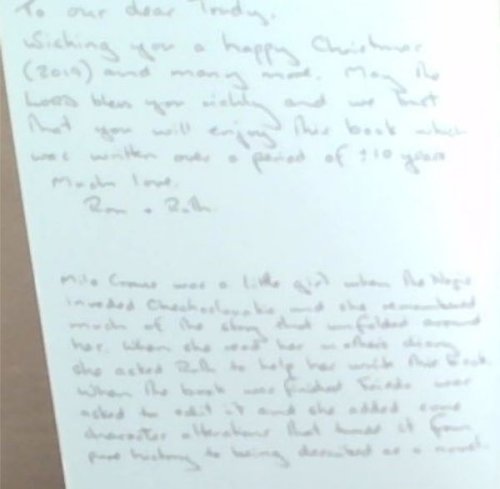 To our dear Trudy,
Wishing you a happy Christmas
(2019) and many more. May the
LORD bless you richly and we trust
that you will enjoy this book which
was written over a period of ±10 years
Much love,
Ron + Ruth
was a little girl when the Nazis
invaded Checkoslovakia and she remembered
much of the story that unfolded around
her. When she read her mother's diary
she asked Ruth to help her write this book.
When the book was finished was
asked to edit it and she added some
character alterations that turned it from
pure history to being described as a novel.